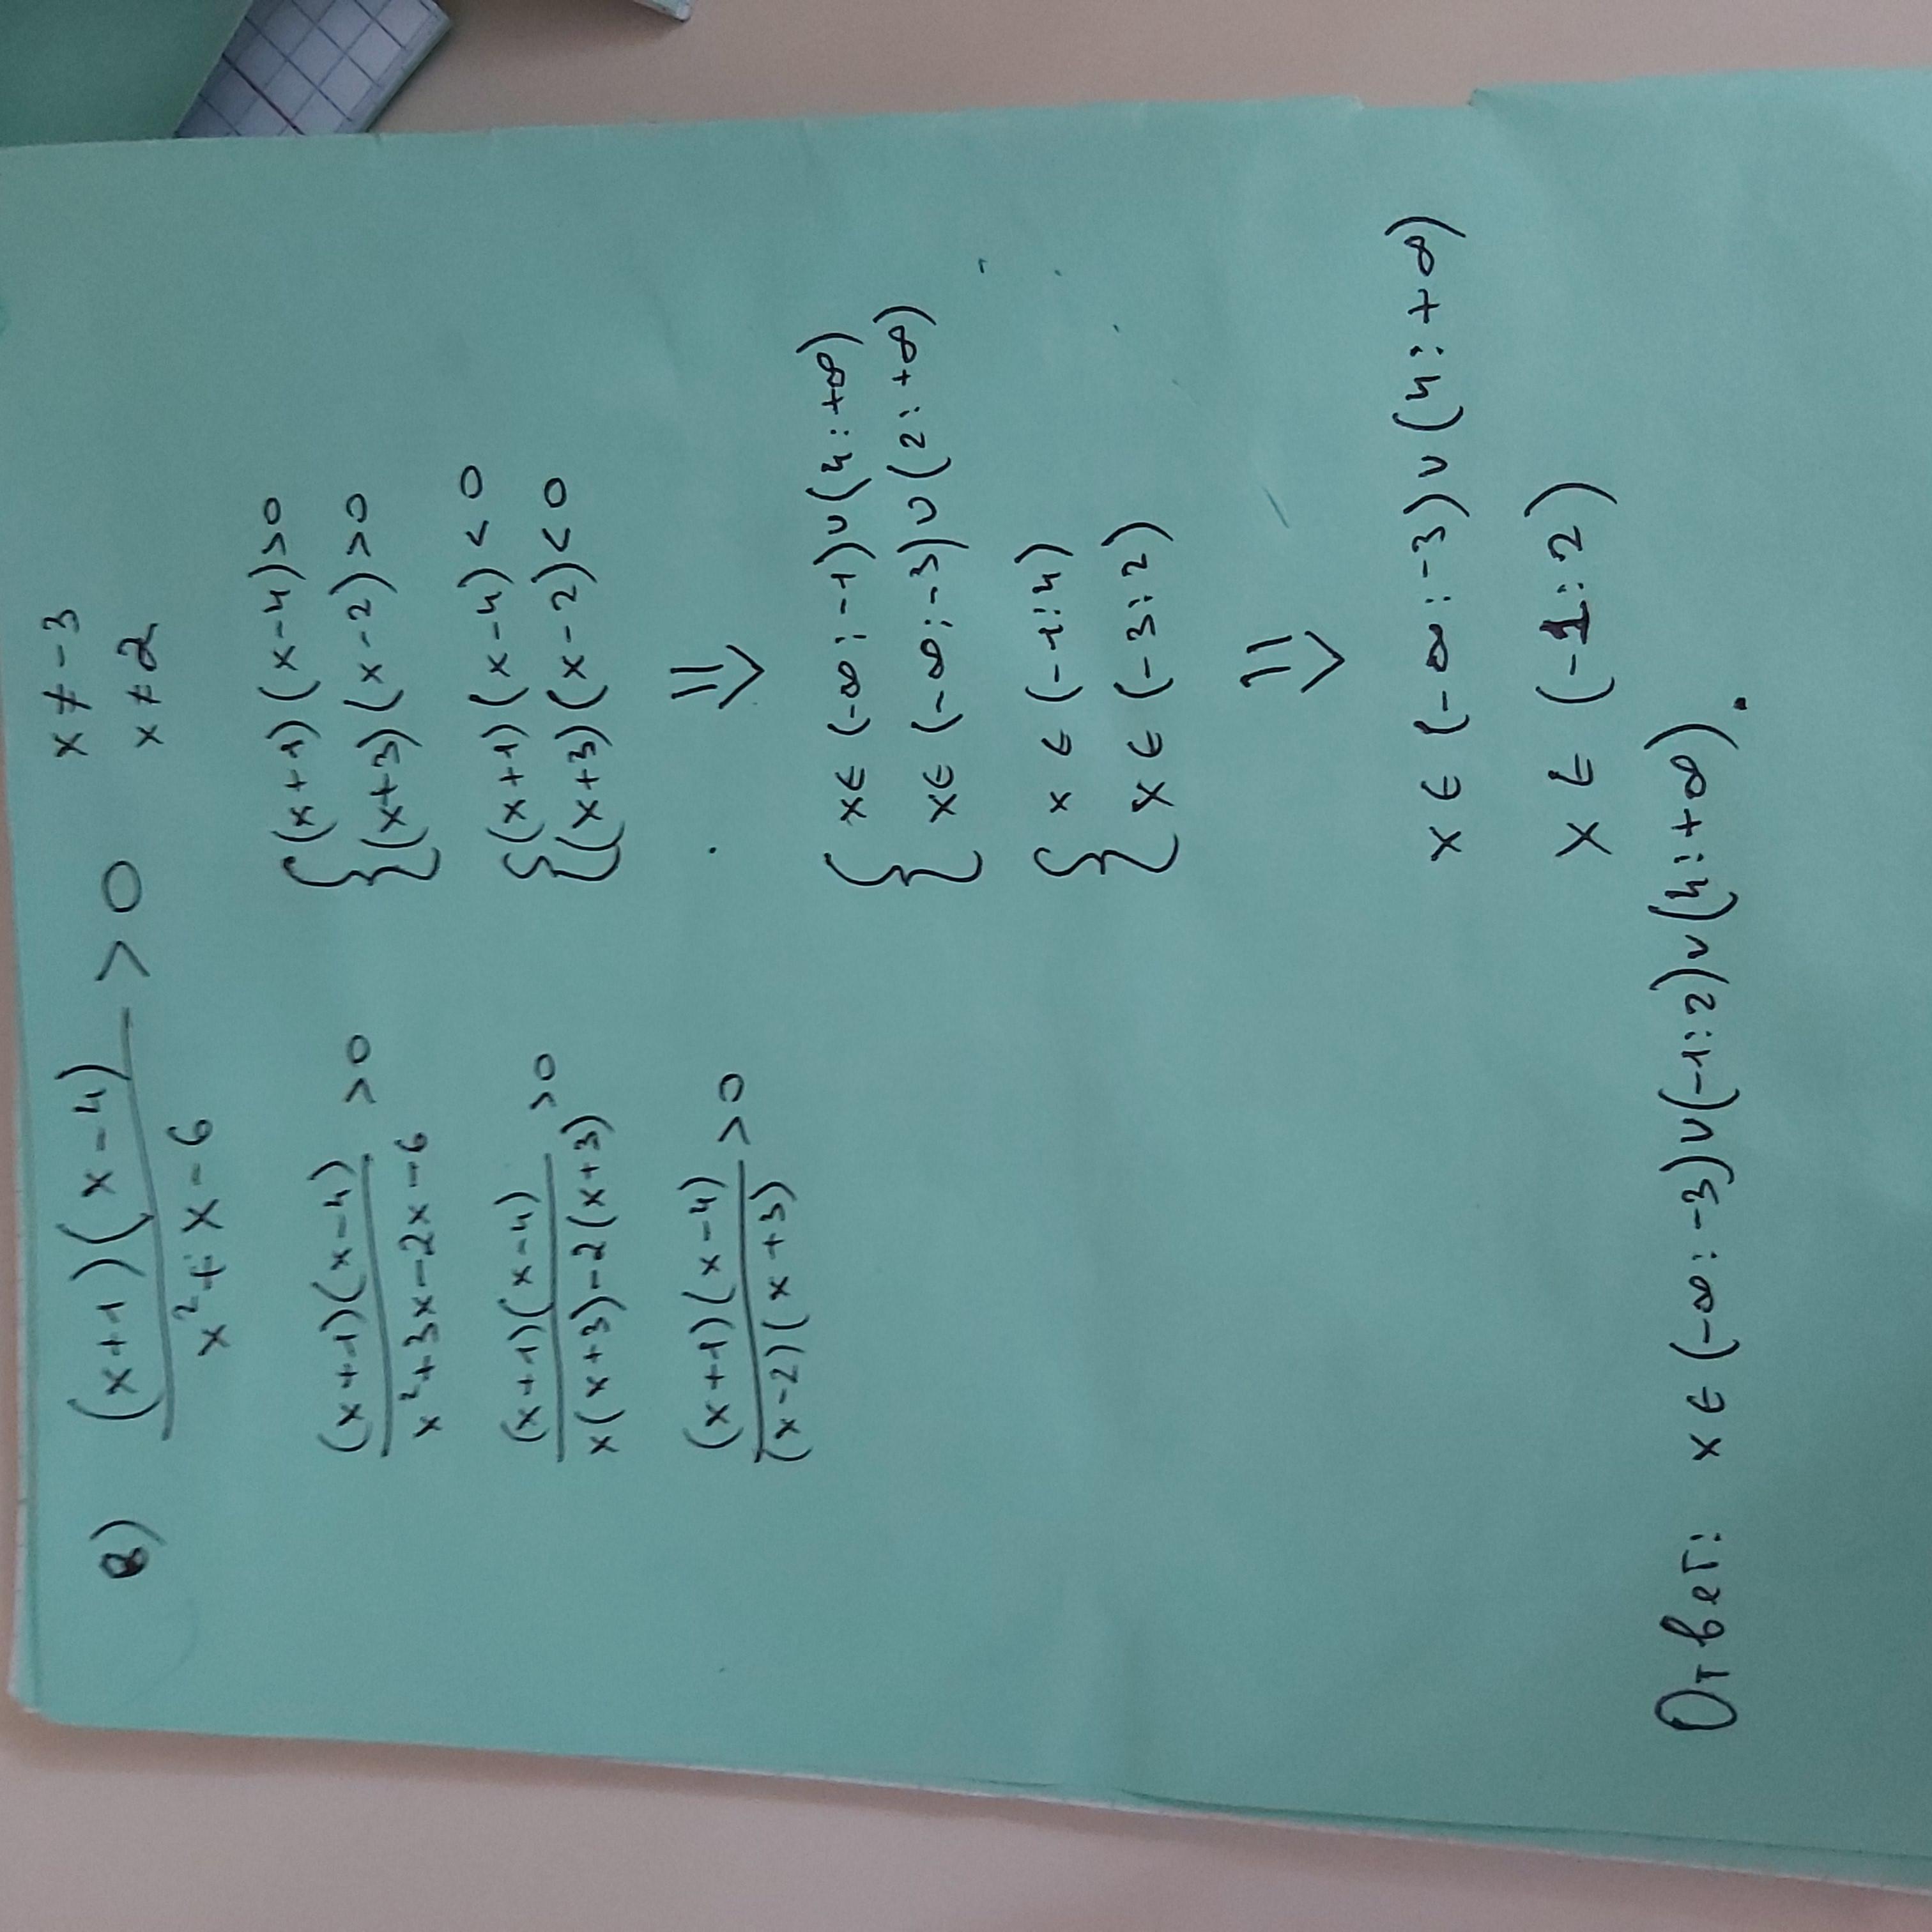 в) (x+1)(x-4) / x²+x-6 > 0   x ≠ -3
x ≠ 2
(x+1)(x-4) / x²+3x-2x-6 > 0
(x+1)(x-4) / x(x+3)-2(x+3) > 0
(x+1)(x-4) / (x-2)(x+3) > 0
{(x+1)(x-4)>0
(x+3)(x-2)>0
{(x+1)(x-4)<0
(x+3)(x-2)<0
⇒
{x∈(-∞;-1)∪(4:+∞)
x∈(-∞;-3)∪(2:+∞)
{x∈(-1:4)
x∈(-3:2)
⇒
x∈(-∞:-3)∪(4:+∞)
x∈(-1:2)
Ответ: x∈(-∞:-3)∪(-1:2)∪(4:+∞).